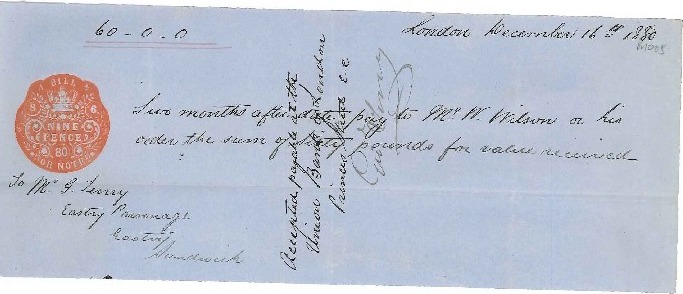 60-0-0
London December 16th 1880
Two months after date pay to Mr W. Wilson or his
order the sum of sixty pounds for value received
BILL
NINE
PENCE
80
OR NOTE
To Mr G. Terry
Eastry Parsonage
Eastry
Sandwich
Accepted payable at the
Union Bank of London
Princes Street E.C.
Terry